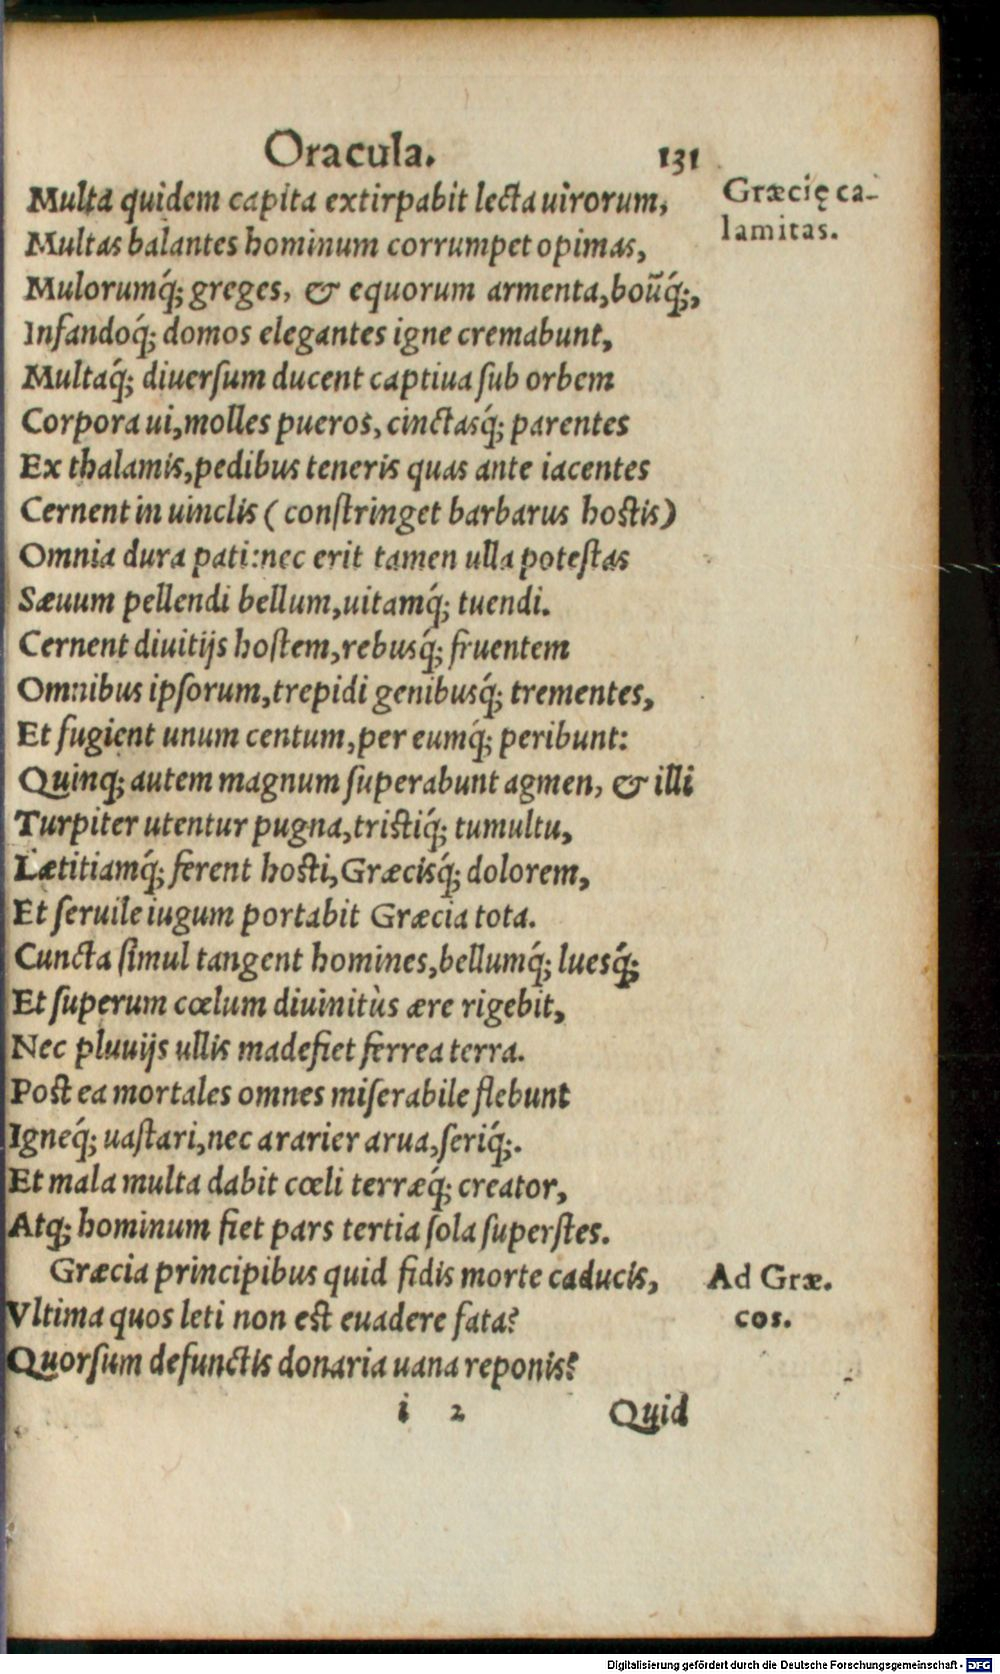 Oracula. 131
Multa quidem capita extirpabit lecta uirorum,
Græcię ca-
lamitas.
Multas balantes hominum corrumpet opimas,
Mulorumq́; greges, & equorum armenta, boũq́;,
Infandoq́; domos elegantes igne cremabunt,
Multaq́; diuerſum ducent captiua ſub orbem
Corpora ui, molles pueros, cinctasq́; parentes
Ex thalamis, pedibus teneris quas ante iacentes
Cernent in uinclis (conſtringet barbarus hoſtis)
Omnia dura pati: nec erit tamen ulla poteſtas
Sæuum pellendi bellum, uitamq́; tuendi.
Cernent diuitijs hoſtem, rebusq́; fruentem
Omnibus ipſorum, trepidi genibusq́; trementes,
Et fugient unum centum, per eumq́; peribunt:
Quinq; autem magnum ſuperabunt agmen, & illi
Turpiter utentur pugna, triſtiq́; tumultu,
Lætitiamq́; ferent hoſti, Græcisq́; dolorem,
Et ſeruile iugum portabit Græcia tota.
Cuncta ſimul tangent homines, bellumq́; luesq́;
Et ſuperum cœlum diuinitùs ære rigebit,
Nec pluuijs ullis madefiet ferrea terra.
Poſt ea mortales omnes miſerabile flebunt
Igneq́; uaſtari, nec ararier arua, ſeriq́;.
Et mala multa dabit cœli terræq́; creator,
Atq; hominum fiet pars tertia ſola ſuperſtes.
Græcia principibus quid fidis morte caducis,
Ad Græ.
cos.
Vltima quos leti non eſt euadere fata?
Quorſum defunctis donaria uana reponis?
i 2 Quid
Digitalisierung gefördert durch die Deutsche Forschungsgemeinschaft - DFG